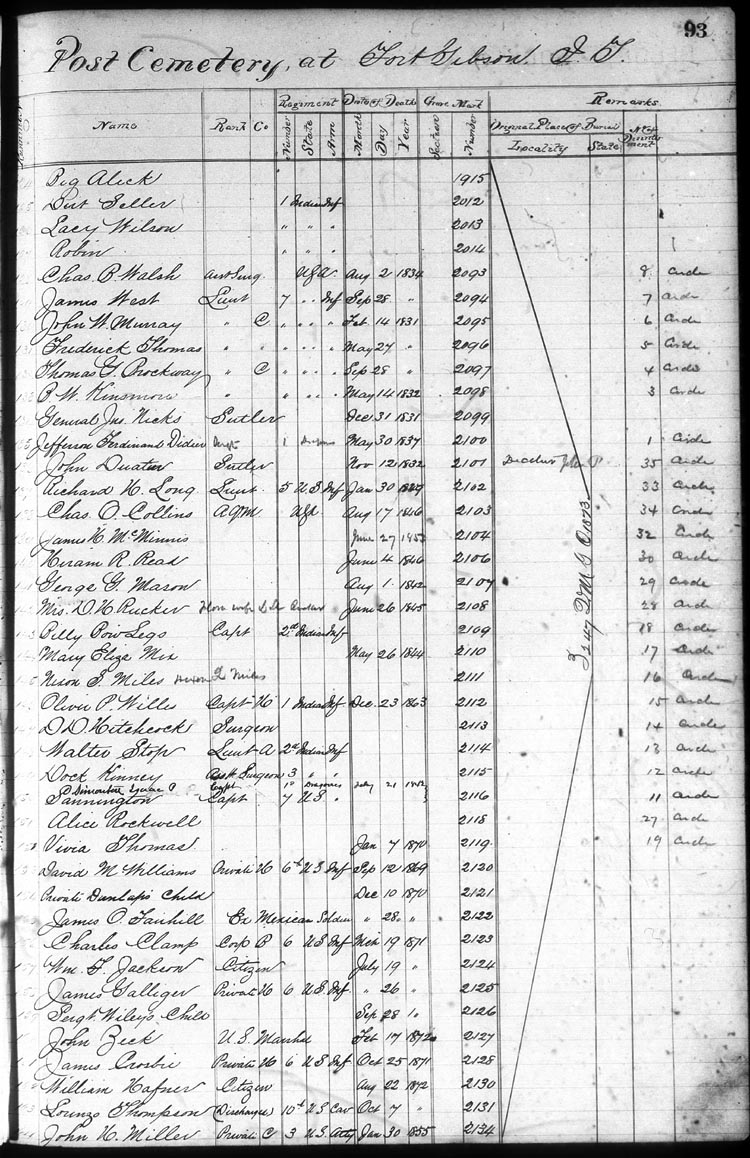 93
Post Cemetery, at Fort Gibson I. T.
Name Rank Co Regiment Number State Arm Date of Death Month Day Year Grave Mark Section Number Remarks Original Place of Burial Locality State No of Disinterment
Big Alick 1915
Dirt Seller 1 Indian Inf 2012
Lacy Wilson " " " 2013
Robin " " " 2014
Chas. B. Walsh Asst Surg. USA Aug 2 1834 2093 8 Circle
James West Lieut 7 " " Inf Sep 28 " 2094 7 Circle
John W. Murray " C " " " " Feb 14 1831 2095 6 Circle
Frederick Thomas " " " " " " May 27 " 2096 5 Circle
Thomas G. Brockway " C " " " " Sep 28 " 2097 4 Circle
B. W. Kinsmore " " " " " May 14 1832 2098 3 Circle
General Jno. Nicks Sutler Dec 31 1831 2099
Jefferson Ferdinand Didier 1 May 30 1837 2100 1 Circle
John Duatin Sutler Nov 12 1832 2101 35 Circle
Richard H. Long Lieut 5 U S Inf Jan 30 2102 33 Circle
Chas. O. Collins A.Q.M USA Aug 17 1846 2103 34 Circle
James H. McMinnis June 27 2104 32 Circle
Hiram R. Read June 4 1846 2106 30 Circle
George G. Mason Aug 1 1842 2107 29 Circle
Mrs. D. H. Rucker June 26 1845 2108 28 Circle
Billy Bow Legs Capt 2nd Indian Inf 2109 18 Circle
Mary Eliza Mix May 26 1844 2110 17 Circle
Nixon S. Miles 2111 16 Circle
Oliver P. Willis Capt H 1 Indian Inf Dec. 23 1863 2112 15 Circle
D. D. Hitchcock Surgeon 2113 14 Circle
Walter Stop Lieut A 2nd Indian Inf 2114 13 Circle
Dock Kinney Asst Surgeon 3 " " 2115 12 Circle
Capt 1st Dragoons July 21
Pannington Capt 7 U S " 2116 11 Circle
Alice Rockwell 2118 27 Circle
Vivia Thomas Jan 7 1870 2119 19 Circle
David McWilliams Private H 6th U S Inf Sep 12 1869 2120
Private Dunlap's Child Dec 10 1870 2121
James O. Fairhill Ex Mexican Soldier " 28 " 2122
Charles Clamp Corp B 6 U S Inf Mch 19 1871 2123
Wm. F. Jackson Citizen July 19 " 2124
James Galliger Private H 6 U S Inf " 26 " 2125
Sergt Wiley's Child Sep 28 " 2126
John Zeck U.S. Marshal Feb 17 1872 2127
James Crosbie Private H 6 U S Inf Oct 25 1871 2128
William Hafner Citizen Aug 22 1872 2130
Lorenzo Thompson (Discharged) 10th U S Cav Oct 7 " 2131
John H. Miller Private C 3 U.S. Arty Jan 30 1855 2134
3247 Q M G O 1873